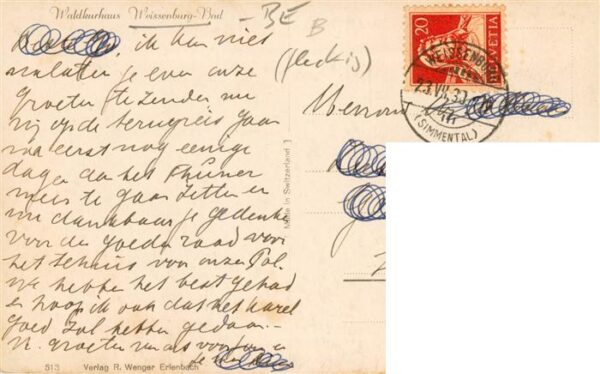 Waldkurhaus Weissenburg-Bad
- BE
B
(fleckig)
ik kan niet
nalaten je even onze
groeten te zenden nu
wij op de terugreis gaan
na eerst nog eenige
dagen aan het Thuner
meer te gaan zitten en
nu dankbaar je gedenke
voor den goeden raad voor
het tehuis voor onzen Pol.
We hebben het best gehad
en hoop ik ook dat het Karel
goed zal hebben gedaan.-
V. groeten van ons voor jou en
je man
513 Verlag R. Wenger Erlenbach
Made in Switzerland
20
HELVETIA
WEISSENBURG
23.VII.30
(SIMMENTAL)
Mevrouw